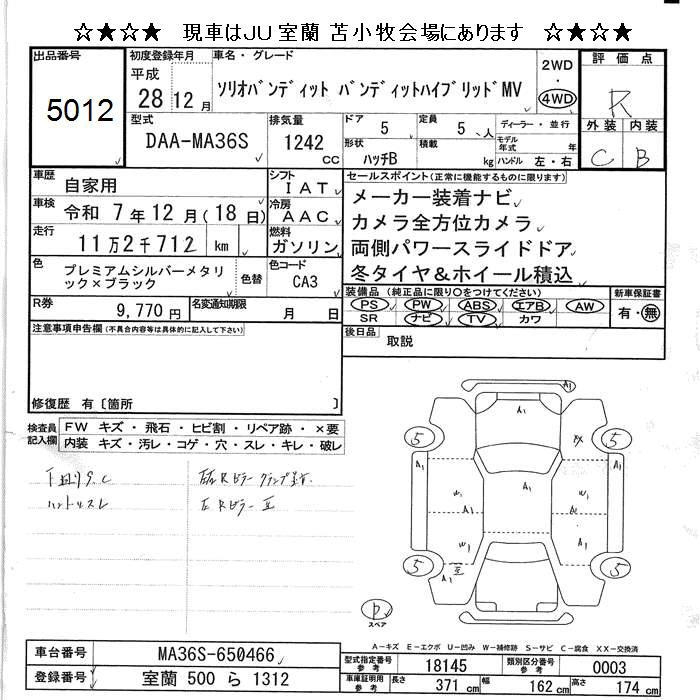 ☆★☆★ 現車はJU室蘭 苫小牧会場にあります ☆★☆★
出品番号 5012
初度登録年月 平成 28年 12月
車名・グレード ソリオバンディット バンディットハイブリッドMV
2WD 4WD
評価点 R
外装 C 内装 B
型式 DAA-MA36S
排気量 1242 CC
ドア 5
定員 5 人
形状 ハッチB
積載 kg
ディーラー・並行
モデル年式 年
ハンドル 左・右
車歴 自家用
シフト IAT
車検 令和 7年12月(18日)
冷房 AAC
走行 11万2千712 km
燃料 ガソリン
色 プレミアムシルバーメタリック×ブラック
色替
色コード CA3
R券 9,770円
名変通知期限 月 日
セールスポイント(正常に機能するものに限ります)
メーカー装着ナビ
カメラ全方位カメラ
両側パワースライドドア
冬タイヤ&ホイール積込
装備品(純正品に限り〇をつけてください)
PS PW ABS エアB AW
SR ナビ TV カワ
新車保証書 有・無
後日品 取説
注意事項申告欄(不具合内容等は具体的に記入して下さい)
修復歴 有〔箇所 〕
検査員記入欄
FW キズ・飛石・ヒビ割・リペア跡・×要
内装 キズ・汚レ・コゲ・穴・スレ・キレ・破レ
ハンドルスレ
A1
A1
A1
A1
A1
A1
W1
W1
W1
W1
5
5
5
5
P
スペア
A-キズ E-エクボ U-凹み W-補修跡 S-サビ C-腐食 XX-交換済
車台番号 MA36S-650466
登録番号 室蘭 500 ら 1312
型式指定番号 参考 18145
類別区分番号 参考 0003
車庫証明用 参考 長さ 371 cm 幅 162 cm 高さ 174 cm